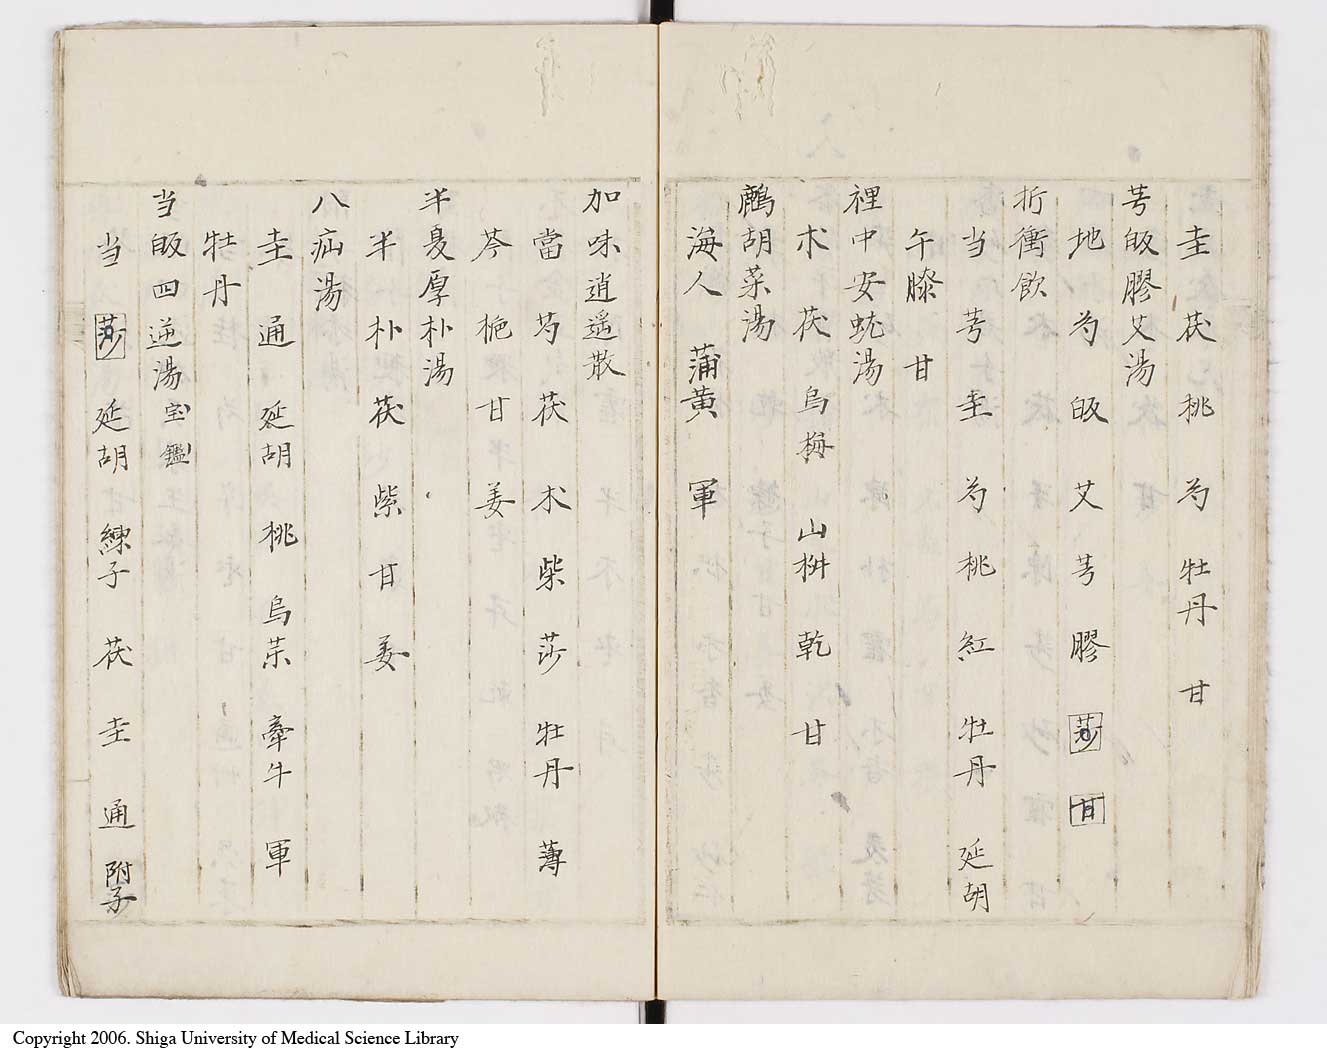 圭 茯 桃 芍 牡丹 甘
芎皈膠艾湯
地 芍 皈 艾 芎 膠 莎 甘
折衝飲
当 芎 圭 芍 桃 紅 牡丹 延胡
午膝 甘
裡中安蚘湯
朮 茯 烏梅 山椒 乾 甘
鷓胡菜湯
海人 蒲黄 軍
加味逍遥散
當 芍 茯 朮 柴 莎 牡丹 薄
芩 梔 甘 姜
半夏厚朴湯
半 朴 茯 紫 甘 姜
八疝湯
圭 通 延胡 桃 烏 牽牛 軍
牡丹
当皈四逆湯 宝鑑
当 莎 延胡 練子 茯 圭 通 附子
Copyright 2006. Shiga University of Medical Science Library